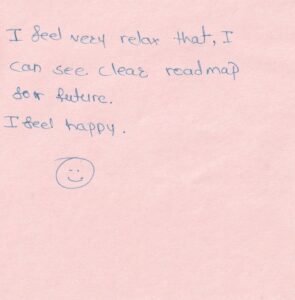 I feel very relax that, I
can see clear roadmap
for future.
I feel happy.